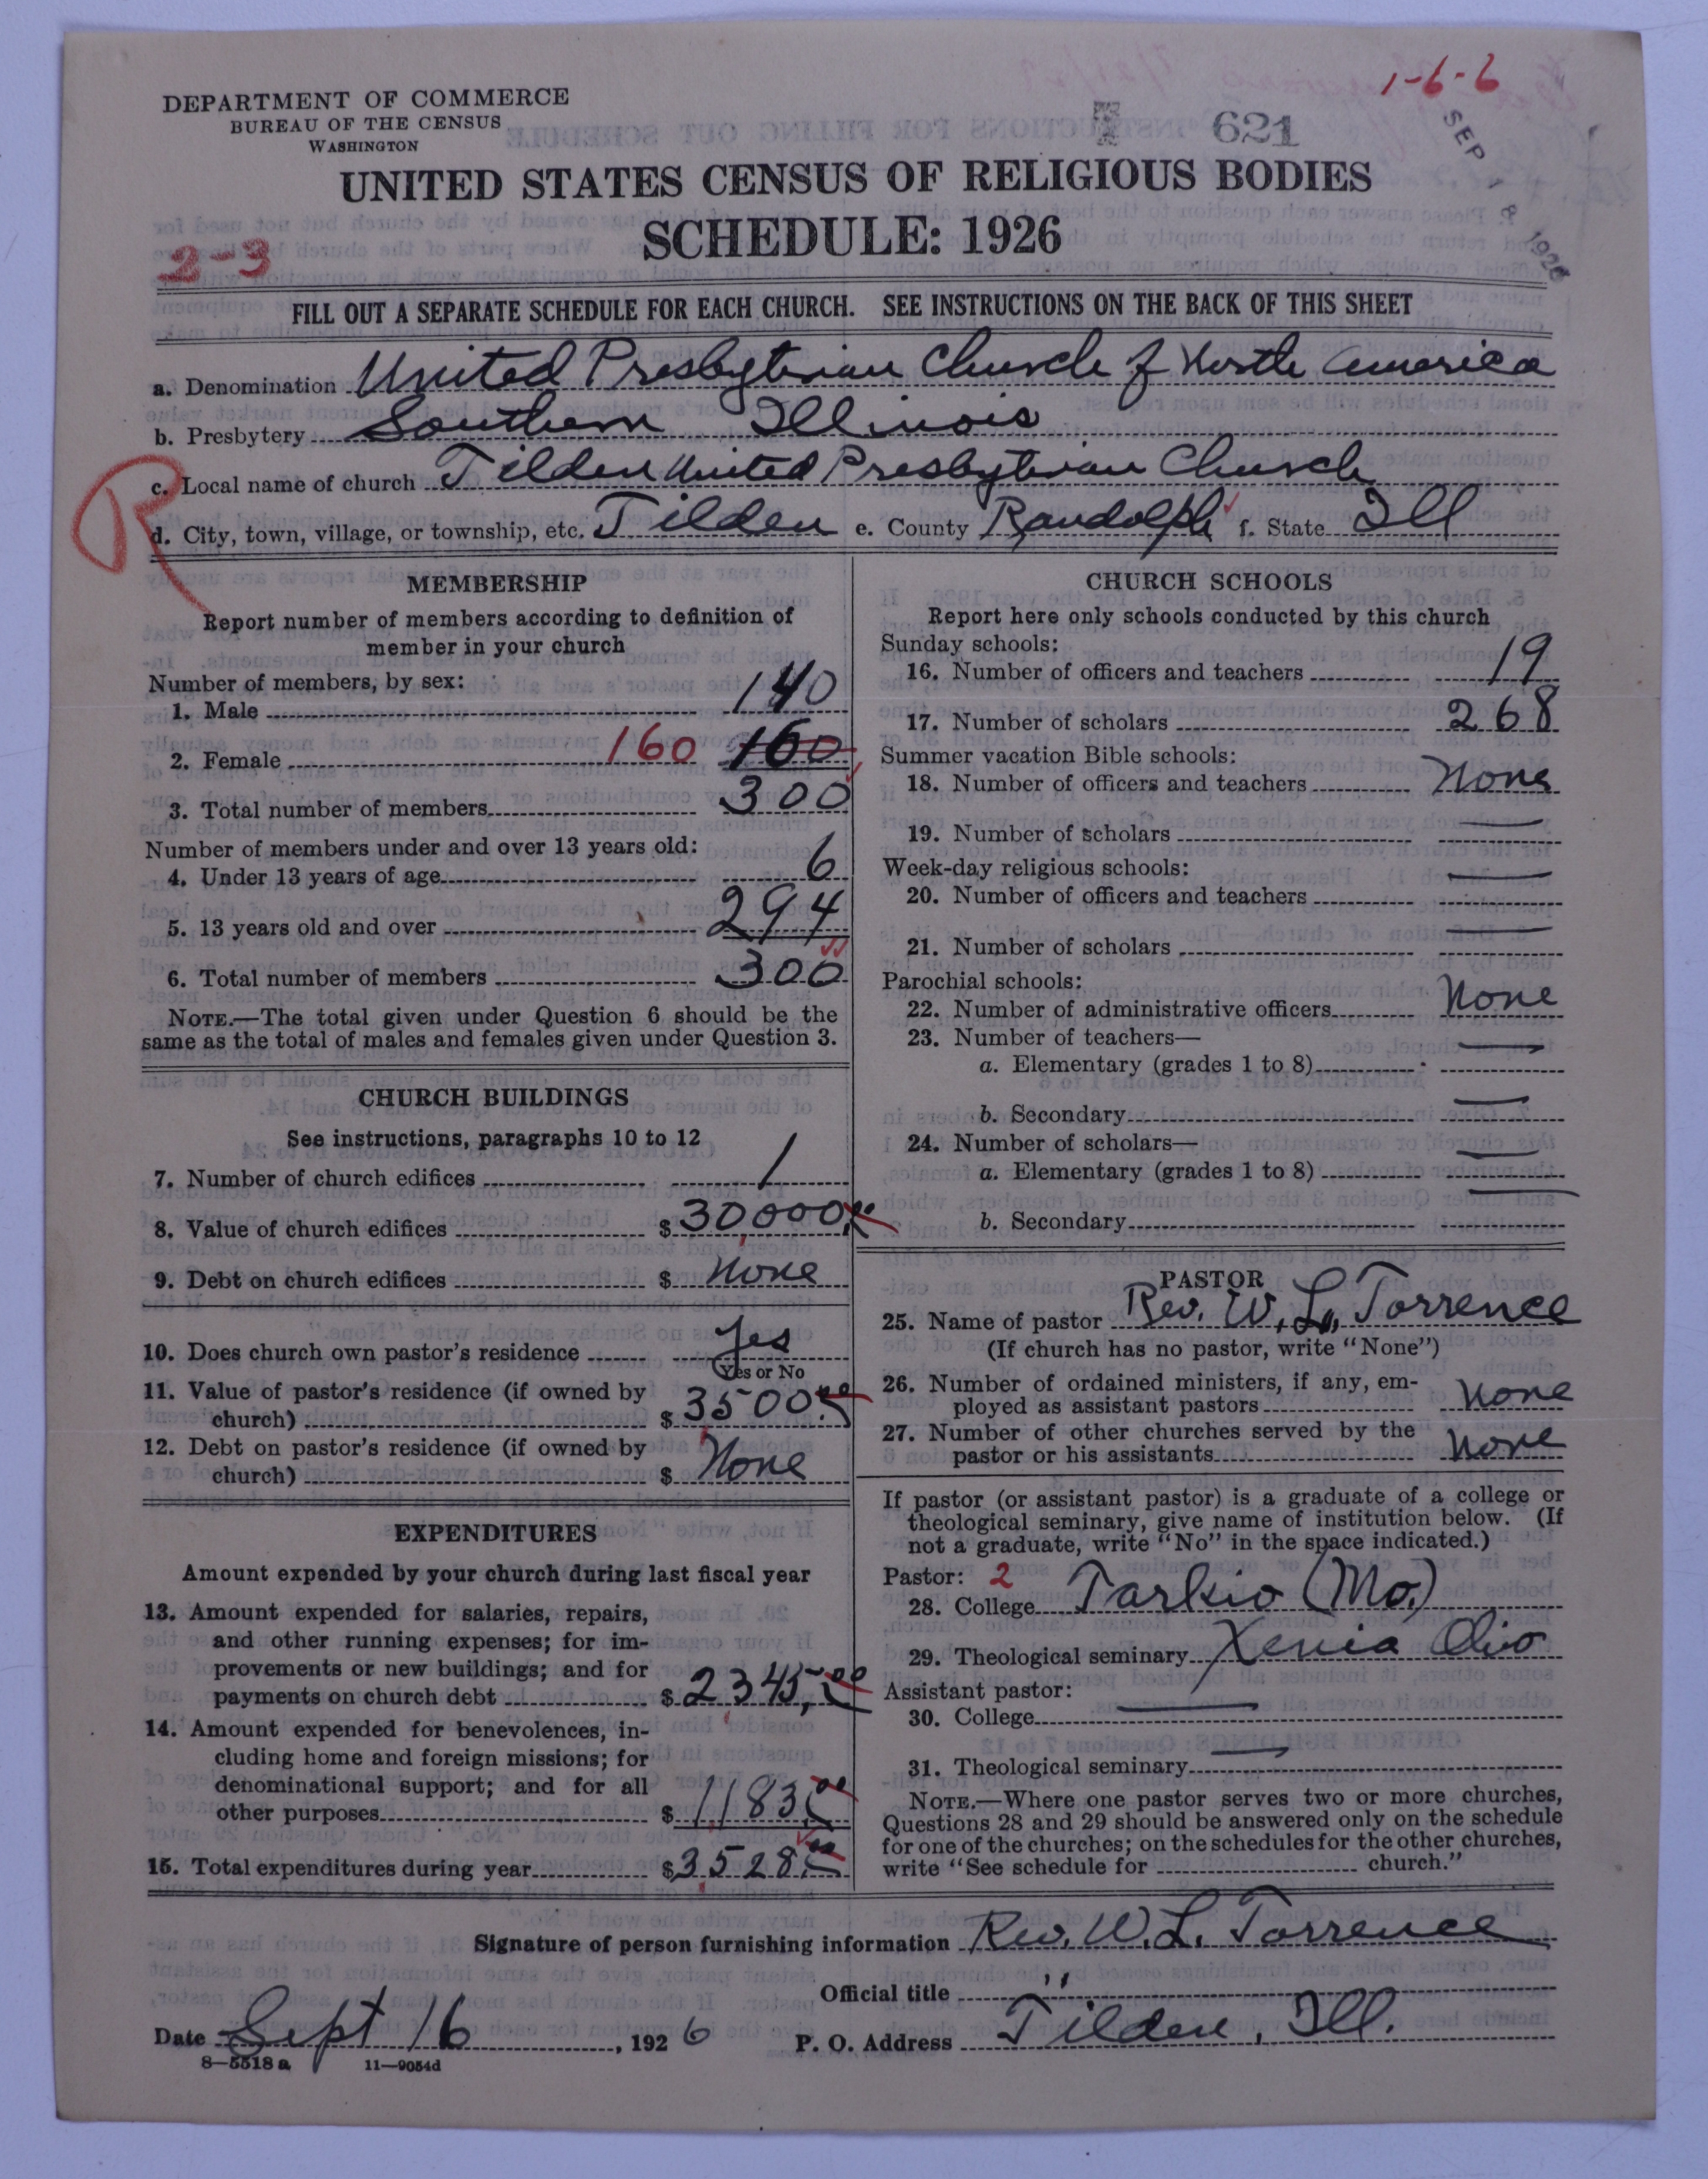 1-6-6
DEPARTMENT OF COMMERCE
BUREAU OF THE CENSUS
WASHINGTON
621
SEP 18 1926
UNITED STATES CENSUS OF RELIGIOUS BODIES
SCHEDULE: 1926
2-3
FILL OUT A SEPARATE SCHEDULE FOR EACH CHURCH. SEE INSTRUCTIONS ON THE BACK OF THIS SHEET
a. Denomination United Presbyterian Church of North America
b. Presbytery Southern Illinois
R
c. Local name of church Tilden United Presbyterian Church
d. City, town, village, or township, etc. Tilden e. County Randolph f. State Ill
MEMBERSHIP
Report number of members according to definition of
member in your church
Number of members, by sex:
1. Male 140
2. Female 160 160
3. Total number of members 300
Number of members under and over 13 years old:
4. Under 13 years of age 6
5. 13 years old and over 294
6. Total number of members 300
NOTE.—The total given under Question 6 should be the
same as the total of males and females given under Question 3.
CHURCH BUILDINGS
See instructions, paragraphs 10 to 12
7. Number of church edifices 1
8. Value of church edifices $30,000.00
9. Debt on church edifices $ None
10. Does church own pastor's residence Yes
Yes or No
11. Value of pastor's residence (if owned by
church) $3500.00
12. Debt on pastor's residence (if owned by
church) $ None
EXPENDITURES
Amount expended by your church during last fiscal year
13. Amount expended for salaries, repairs,
and other running expenses; for im-
provements or new buildings; and for
payments on church debt $2345.00
14. Amount expended for benevolences, in-
cluding home and foreign missions; for
denominational support; and for all
other purposes $1183.00
15. Total expenditures during year $3528.00
CHURCH SCHOOLS
Report here only schools conducted by this church
Sunday schools:
16. Number of officers and teachers 19
17. Number of scholars 268
Summer vacation Bible schools:
18. Number of officers and teachers None
19. Number of scholars —
Week-day religious schools:
20. Number of officers and teachers —
21. Number of scholars —
Parochial schools:
22. Number of administrative officers None
23. Number of teachers—
a. Elementary (grades 1 to 8) —
b. Secondary —
24. Number of scholars—
a. Elementary (grades 1 to 8) —
b. Secondary —
PASTOR
25. Name of pastor Rev. W. L. Torrence
(If church has no pastor, write "None")
26. Number of ordained ministers, if any, em-
ployed as assistant pastors None
27. Number of other churches served by the
pastor or his assistants None
If pastor (or assistant pastor) is a graduate of a college or
theological seminary, give name of institution below. (If
not a graduate, write "No" in the space indicated.)
Pastor: 2
28. College Tarkio (Mo.)
29. Theological seminary Xenia Ohio
Assistant pastor:
30. College —
31. Theological seminary —
NOTE.—Where one pastor serves two or more churches,
Questions 28 and 29 should be answered only on the schedule
for one of the churches; on the schedules for the other churches,
write "See schedule for church."
Signature of person furnishing information Rev. W. L. Torrence
Official title "
Date Sept 16, 1926 P. O. Address Tilden, Ill.
8—5518 a 11—9054d